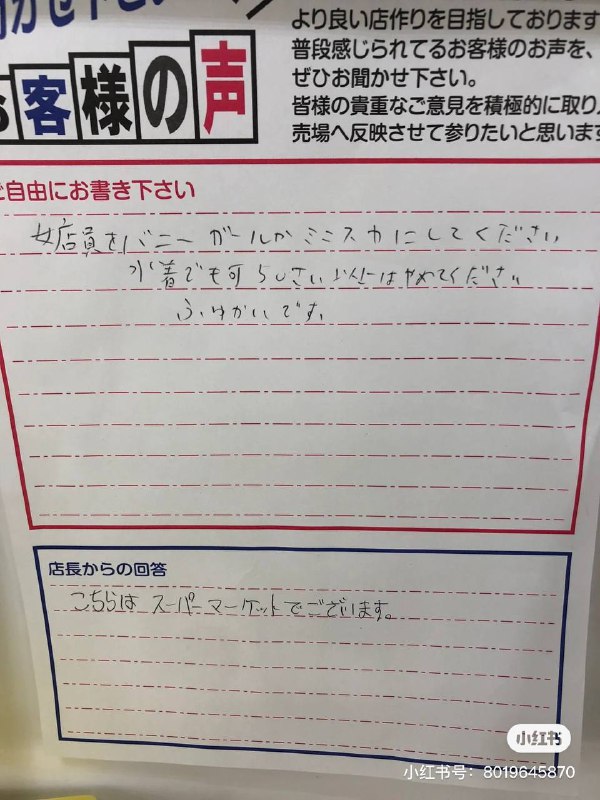 より良い店作りを目指しております
普段感じられてるお客様のお声を、
ぜひお聞かせ下さい。
皆様の貴重なご意見を積極的に取り入
売場へ反映させて参りたいと思います
お客様の声
ご自由にお書き下さい
女店員をバニーガールかミニスカにしてください
水着でも可
はやめてください
ふゆかいです。
店長からの回答
こちらはスーパーマーケットでございます。
小红书
小红书号：8019645870